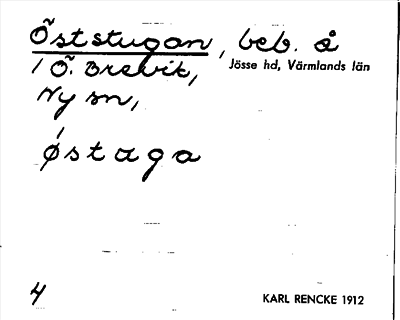 Öststugan, beb. å
1 Ö. Brevik, Jösse hd, Värmlands län
Ny sn,
ǿstaga
4 KARL RENCKE 1912